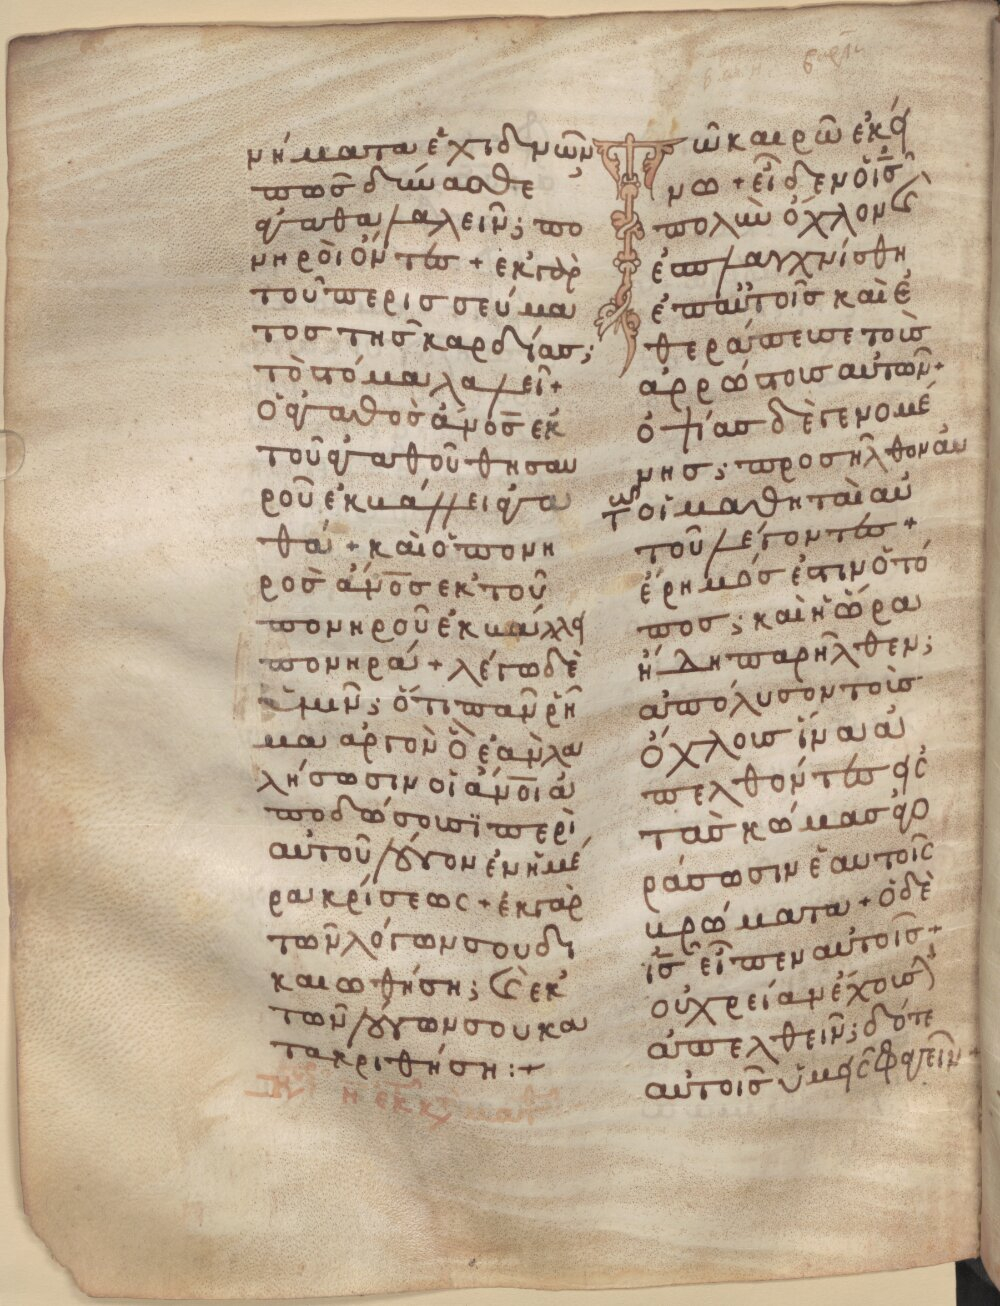 νήματα ἐχιδνῶν
πῶς δύνασθε
ἀγαθὰ λαλεῖν; πο
νηροὶ ὄντες + ἐκ γὰρ
τοῦ περισσεύμα
τος τῆς καρδίας;
τὸ στόμα λαλεῖ +
ὁ ἀγαθὸς ἄνος ἐκ
τοῦ ἀγαθοῦ θησαυ
ροῦ ἐκβάλλει ἀγα
θά + καὶ ὁ πονη
ρὸς ἄνος ἐκ τοῦ
πονηροῦ ἐκβάλλει
πονηρά + λέγω δὲ
ὑμῖν; ὅτι πᾶν ῥῆ
μα ἀργὸν ὃ ἐὰν λα
λήσωσιν οἱ ἄνοι ἀ
ποδώσουσι περὶ
αὐτοῦ λόγον ἐν ἡμέ
ρα κρίσεως + ἐκ γὰρ
τῶν λόγων σου δι
καιωθήση; καὶ ἐκ
τῶν λόγων σου κα
τακριθήση :+
Τῶ καιρῶ ἐκεί
νω + εἶδεν ὁ ις
πολὺν ὄχλον καὶ
ἐσπλαγχνίσθη
ἐπ αὐτοῖς καὶ ἐ
θεράπευσε τοὺς
ἀρρώστους αὐτῶν +
ὀψίας δὲ γενομέ
νης; προσῆλθον αὐ
τῶ οἱ μαθηταὶ αὐ
τοῦ λέγοντες +
ἔρημός ἐστιν ὁ τό
πος; καὶ ἡ ὥρα
ἤδη παρῆλθεν;
ἀπόλυσον τοὺς
ὄχλους ἵνα ἀ
πελθόντες εἰς
τὰς κώμας ἀγο
ράσωσιν ἑαυτοῖς
βρώματα + ὁ δὲ
ις εἶπεν αὐτοῖς +
οὐ χρείαν ἔχουσιν
ἀπελθεῖν; δότε
αὐτοῖς ὑμεῖς φαγεῖν +